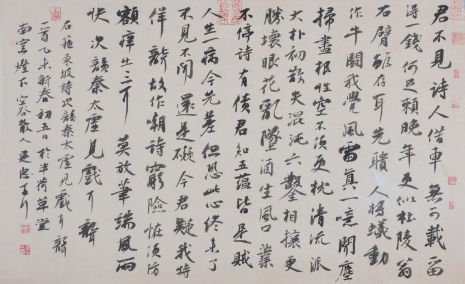 君不見詩人借車無可載留
得錢何足賴晚年更似杜陵翁
右臂雖存耳先聵人將蟻動
作牛鬭我覺風雷真一噫聞塵
掃盡根性空不須更枕清流派
大朴初散失混沌六鑿相攘更
勝壞眼花亂墜酒生風口業
不停詩有債君知五蘊皆是賊
人生一病今先差但恐此心終未了
不見不聞還是礙今君疑我特
佯聾故作嘲詩窮險怪須防
額癢出三耳莫放筆端風雨
快次韻秦太虛見戲耳聾
東坡詩次韻秦太虛見戲耳聾
一首乙未新春初五日於半荷草堂
南窗燈下